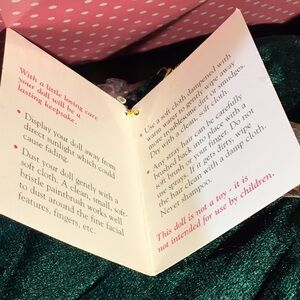 With a little loving care
your doll will be a
lasting keepsake.
• Display your doll away from
direct sunlight which could
cause fading.
• Dust your doll gently with a
soft cloth. A clean, small, soft-
bristle paint brush works well
to dust around the fine facial
features, fingers, etc.
• Use a soft cloth dampened with
warm water to gently wipe away
most troublesome dirt or smudges.
Do with a clean, soft cloth.
• Any stray hair can be carefully
brushed back into place with a
soft brush or your finger. Do not
use sprays. If it gets dirty, wipe
the hair clean with a damp cloth.
Never shampoo.
This doll is not a toy - it is
not intended for use by children.